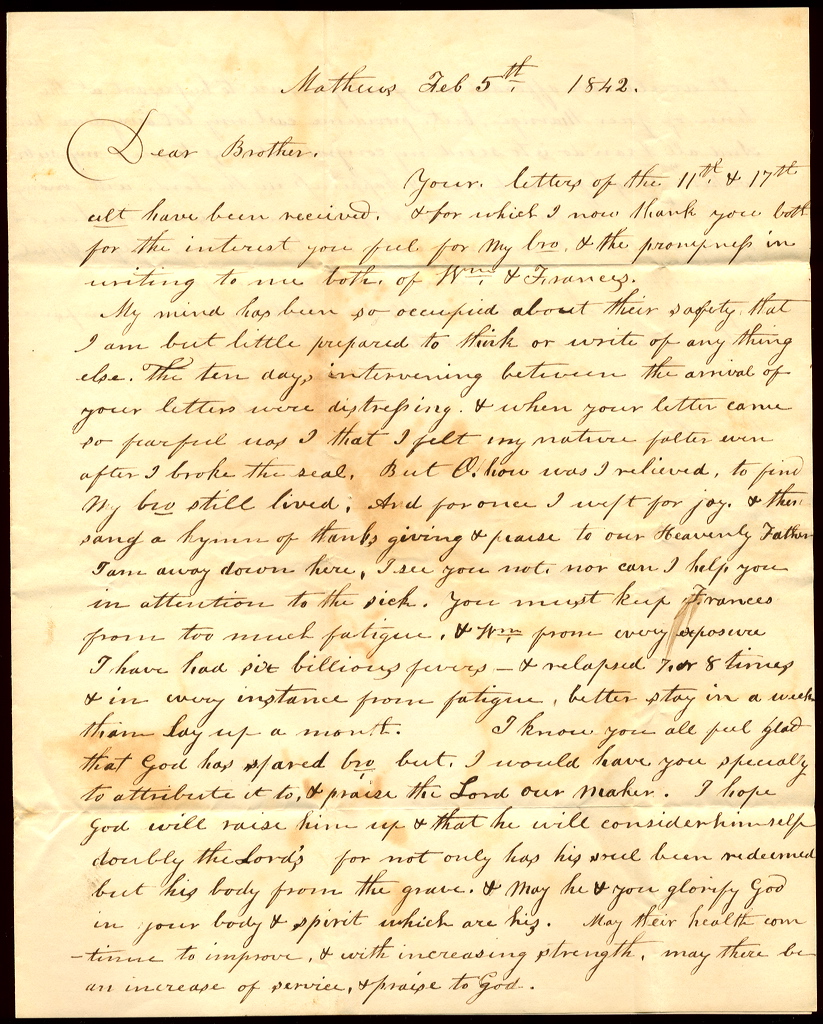 Mathews Feb 5th. 1842.
Dear Brother.
Your. letters of the 11th. & 17th
ult have been received. & for which I now thank you both
for the interest you feel for my bro. & the prompness in
writing to me both. of Wm. & Frances.
My mind has been so occupied about their safety that
I am but little prepared to think or write of any thing
else. The ten days intervening between the arrival of
your letters were distressing. & when your letter came
so fearful was I that I felt my nature falter even
after I broke the seal. But O. how was I relieved, to find
My bro still lived; And for once I wept for joy. & then
sang a hymn of thanks giving & praise to our Heavenly Father
I am away down here, I see you not, nor can I help you
in attention to the sick. You must keep Frances
from too much fatigue. & Wm. from every exposure
I have had six billious fevers – & relapsed 7. or 8 times
& in every instance from fatigue, better stay in a week
than lay up a month. I know you all feel glad
that God has spared bro but, I would have you specially
to attribute it to, & praise the Lord our Maker. I hope
God will raise him up & that he will consider himself
doubly the Lord's for not only has his soul been redeemed
but his body from the grave. & May he & you glorify God
in your body & spirit which are his. May their health con
-tinue to improve, & with increasing strength, may there be
an increase of service, & praise to God.